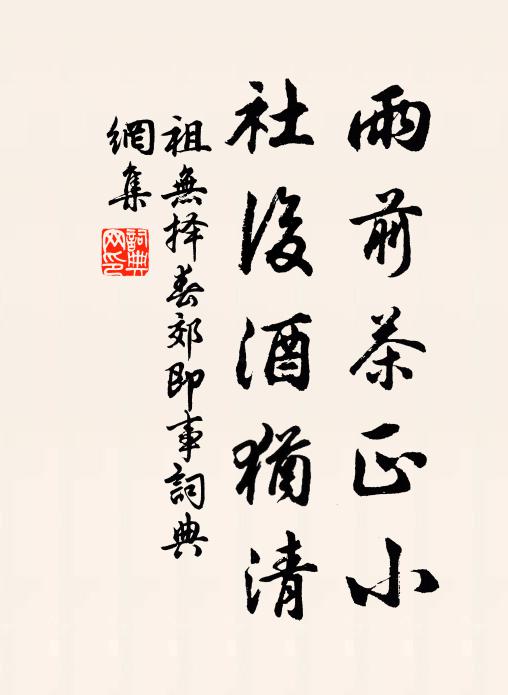 雨前茶正小
社後酒猶清
祖無择春郊即事詞典
網集
詞典網印